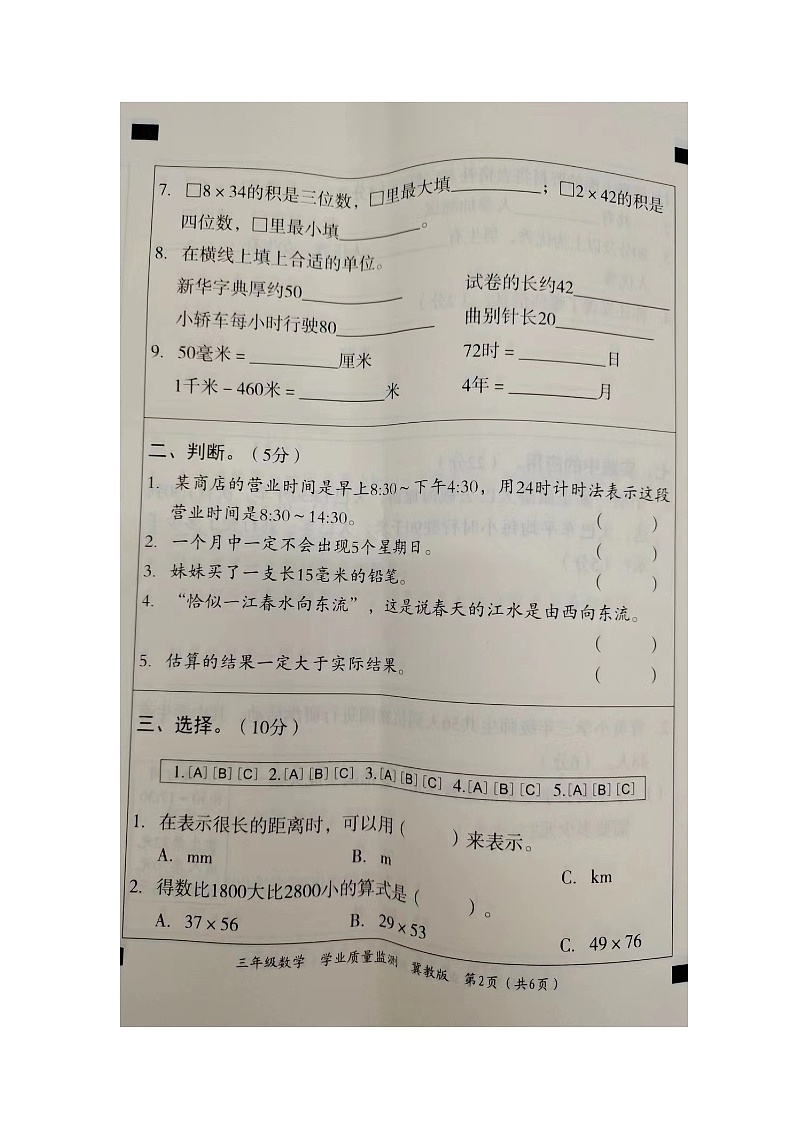 7. □8×34的积是三位数，□里最大填________；□2×42的积是
四位数，□里最小填________。
8. 在横线上填上合适的单位。
新华字典厚约50________ 试卷的长约42________
小轿车每小时行驶80________ 曲别针长20________
9. 50毫米=________厘米 72时=________日
1千米－460米=________米 4年=________月
二、判断。（5分）
1. 某商店的营业时间是早上8:30～下午4:30，用24时计时法表示这段
营业时间是8:30～14:30。 （ ）
2. 一个月中一定不会出现5个星期日。 （ ）
3. 妹妹买了一支长15毫米的铅笔。 （ ）
4. “恰似一江春水向东流”，这是说春天的江水是由西向东流。
（ ）
5. 估算的结果一定大于实际结果。 （ ）
三、选择。（10分）
1.[A][B][C] 2.[A][B][C] 3.[A][B][C] 4.[A][B][C] 5.[A][B][C]
1. 在表示很长的距离时，可以用（ ）来表示。
A. mm B. m C. km
2. 得数比1800大比2800小的算式是（ ）。
A. 37×56 B. 29×53 C. 49×76
三年级数学 学业质量监测 冀教版 第2页（共6页）